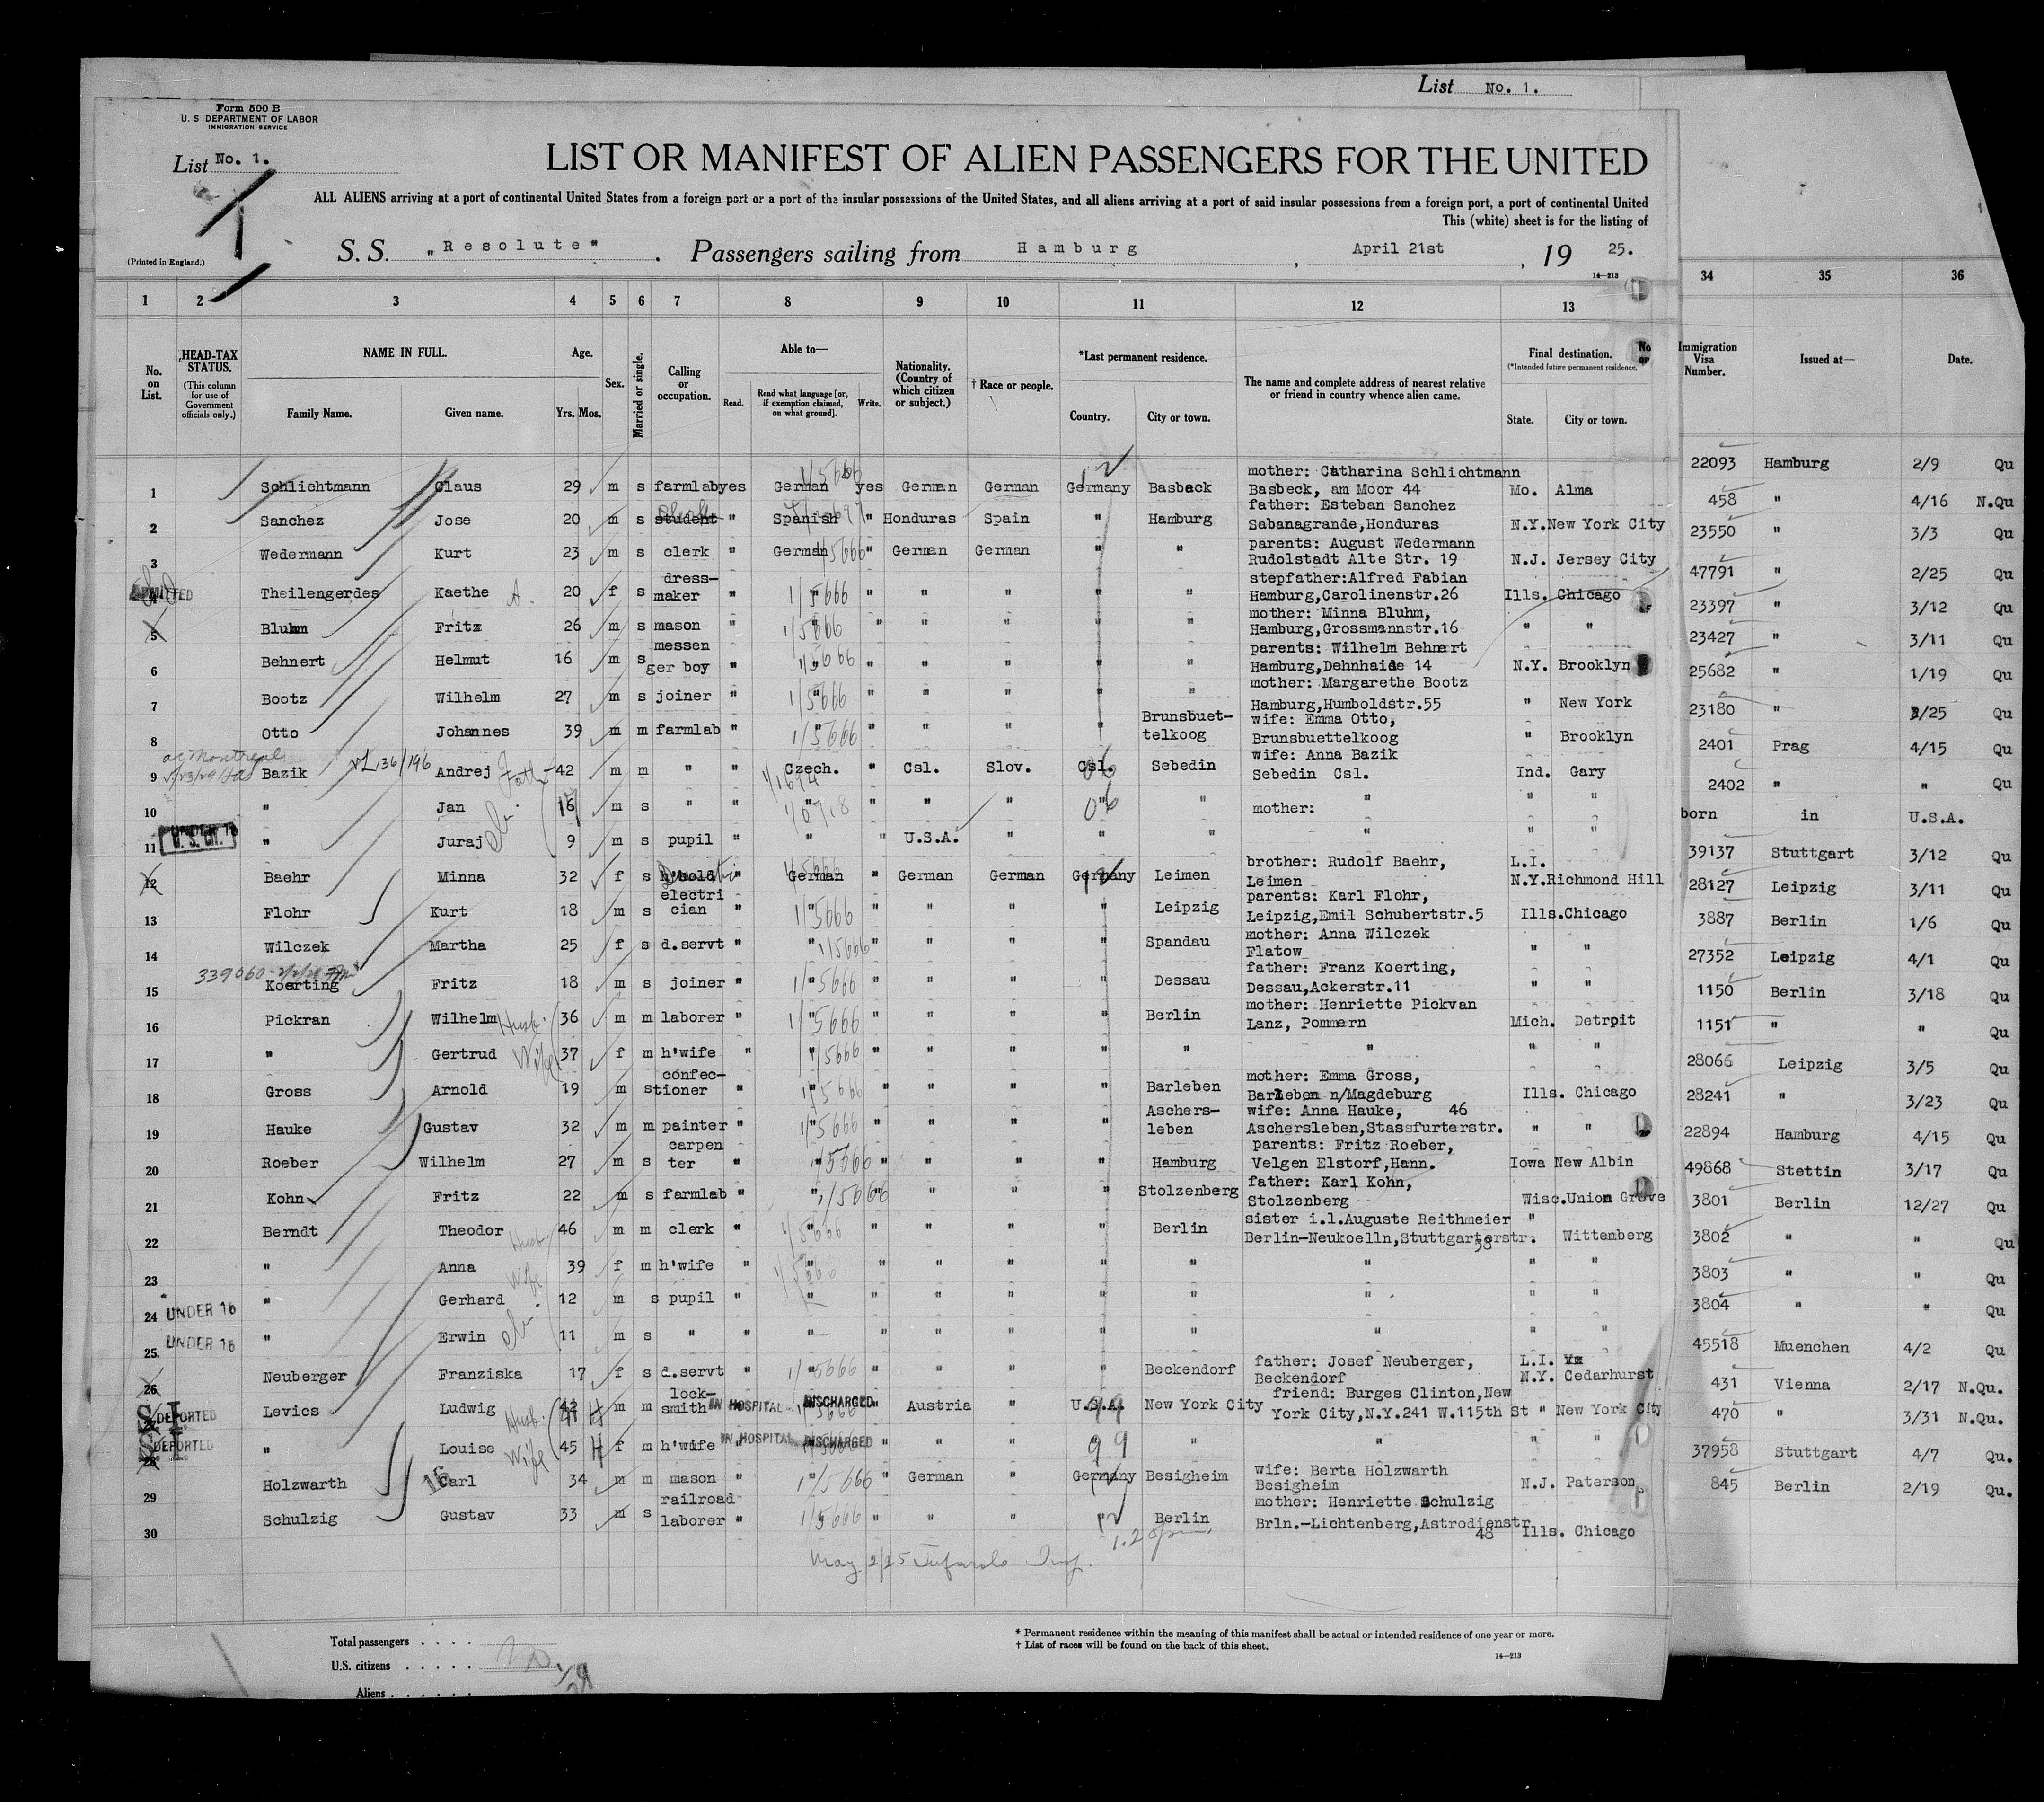 List No. 1.
Form 500 B
U. S DEPARTMENT OF LABOR
IMMIGRATION SERVICE
List No. 1.
LIST OR MANIFEST OF ALIEN PASSENGERS FOR THE UNITED
ALL ALIENS arriving at a port of continental United States from a foreign port or a port of the insular possessions of the United States, and all aliens arriving at a port of said insular possessions from a foreign port, a port of continental United
This (white) sheet is for the listing of
(Printed in England.)
S. S. „Resolute" . Passengers sailing from Hamburg , April 21st , 19 25.
14—213
1 2 3 4 5 6 7 8 9 10 11 12 13 34 35 36
No. on List.
HEAD-TAX STATUS.
(This column for use of Government officials only.)
NAME IN FULL.
Family Name. Given name.
Age.
Yrs. Mos.
Sex.
Married or single.
Calling or occupation.
Able to—
Read. Read what language [or, if exemption claimed, on what ground]. Write.
Nationality. (Country of which citizen or subject.)
† Race or people.
*Last permanent residence.
Country. City or town.
The name and complete address of nearest relative or friend in country whence alien came.
Final destination.
(*Intended future permanent residence.
State. City or town.
No or
Immigration Visa Number.
Issued at—
Date.
1 Schlichtmann Claus 29 m s farmlab yes German yes German German Germany Basback mother: Catharina Schlichtmann Basbeck, am Moor 44 Mo. Alma 22093 Hamburg 2/9 Qu
2 Sanchez Jose 20 m s student " Spanish " Honduras Spain " Hamburg father: Esteban Sanchez Sabanagrande,Honduras N.Y.New York City 458 " 4/16 N.Qu
3 Wedermann Kurt 23 m s clerk " German " German German " " parents: August Wedermann Rudolstadt Alte Str. 19 N.J. Jersey City 23550 " 3/3 Qu
ADMITTED Theilengerdes Kaethe A. 20 f s dress-maker " " " " " " stepfather:Alfred Fabian Hamburg,Carolinenstr.26 Ills. Chicago 47791 " 2/25 Qu
5 Bluhm Fritz 26 m s mason " " " " " " " mother: Minna Bluhm, Hamburg,Grossmannstr.16 " " 23397 " 3/12 Qu
6 Behnert Helmut 16 m s messen ger boy " " " " " " " parents: Wilhelm Behnert Hamburg,Dehnhaide 14 N.Y. Brooklyn 23427 " 3/11 Qu
7 Bootz Wilhelm 27 m s joiner " " " " " " " mother: Margarethe Bootz Hamburg,Humboldstr.55 " New York 25682 " 1/19 Qu
8 Otto Johannes 39 m m farmlab " " " " " " Brunsbuet-telkoog wife: Emma Otto, Brunsbuettelkoog " Brooklyn 23180 " 2/25 Qu
9 Bazik VL 136/196 Andrej Father 42 m m " " Czech. " Csl. Slov. Csl. Sebedin wife: Anna Bazik Sebedin Csl. Ind. Gary 2401 Prag 4/15 Qu
10 " Jan 16 m s " " " " " " mother: " " " 2402 " " Qu
11 U. S. CIT. " Juraj 9 m s pupil " " " U.S.A. " " " " " " born in U.S.A.
12 Baehr Minna 32 f s h'hold " German " German German Germany Leimen brother: Rudolf Baehr, Leimen L.I. N.Y.Richmond Hill 39137 Stuttgart 3/12 Qu
13 Flohr Kurt 18 m s electri cian " " " " " " Leipzig parents: Karl Flohr, Leipzig,Emil Schubertstr.5 Ills.Chicago 28127 Leipzig 3/11 Qu
14 Wilczek Martha 25 f s d.servt " " " " " " Spandau mother: Anna Wilczek Flatow " " 3887 Berlin 1/6 Qu
15 Koerting Fritz 18 m s joiner " " " " " " Dessau father: Franz Koerting, Dessau,Ackerstr.11 " " 27352 Leipzig 4/1 Qu
16 Pickran Wilhelm Husb. 36 m m laborer " " " " " " Berlin mother: Henriette Pickvan Lanz, Pommern Mich. Detrpit 1150 Berlin 3/18 Qu
17 " Gertrud Wife 37 f m h'wife " " " " " " " " " " 1151 " " Qu
18 Gross Arnold 19 m s confec-tioner " " " " " " Barleben mother: Emma Gross, Barleben n/Magdeburg Ills. Chicago 28066 Leipzig 3/5 Qu
19 Hauke Gustav 32 m m painter " " " " " " Aschers-leben wife: Anna Hauke, 46 Aschersleben,Stassfurterstr. " " 28241 " 3/23 Qu
20 Roeber Wilhelm 27 m s carpen ter " " " " " " Hamburg parents: Fritz Roeber, Velgen Elstorf,Hann. Iowa New Albin 22894 Hamburg 4/15 Qu
21 Kohn Fritz 22 m s farmlab " " " " " " Stolzenberg father: Karl Kohn, Stolzenberg Wisc.Union Grove 49868 Stettin 3/17 Qu
22 Berndt Theodor Husb. 46 m m clerk " " " " " " Berlin sister i.l.Auguste Reithmeier Berlin-Neukoelln,Stuttgarterstr. 58 " Wittemberg 3801 Berlin 12/27 Qu
23 " Anna Wife 39 f m h'wife " " " " " " " " " " 3802 " " Qu
24 UNDER 16 " Gerhard 12 m s pupil " " " " " " " " " " 3803 " " Qu
25 UNDER 16 " Erwin 11 m s " " " " " " " " " " " 3804 " " Qu
26 Neuberger Franziska 17 f s d.servt " " " " " " Beckendorf father: Josef Neuberger, Beckendorf L.I. N.Y. Cedarhurst 45518 Muenchen 4/2 Qu
S I DEPORTED Levics Ludwig Husb. 42 41 H m m lock-smith IN HOSPITAL DISCHARGED " Austria " U.S.A. New York City friend: Burges Clinton,New York City,N.Y.241 W.115th St " New York City 431 Vienna 2/17 N.Qu.
S I DEPORTED 28 " Louise Wife 45 H f m h'wife IN HOSPITAL DISCHARGED " " " 99 " " " " 470 " 3/31 N.Qu.
29 Holzwarth Carl 34 m m mason " " " German " Germany Besigheim wife: Berta Holzwarth Besigheim N.J. Paterson 37958 Stuttgart 4/7 Qu.
30 Schulzig Gustav 33 m s railroad laborer " " " " " " Berlin mother: Henriette Schulzig Brln.-Lichtenberg,Astrodienstr 48 Ills. Chicago 845 Berlin 2/19 Qu.
Total passengers . . . .
U.S. citizens . . . . .
Aliens . . . . . .
* Permanent residence within the meaning of this manifest shall be actual or intended residence of one year or more.
† List of races will be found on the back of this sheet.
14—213